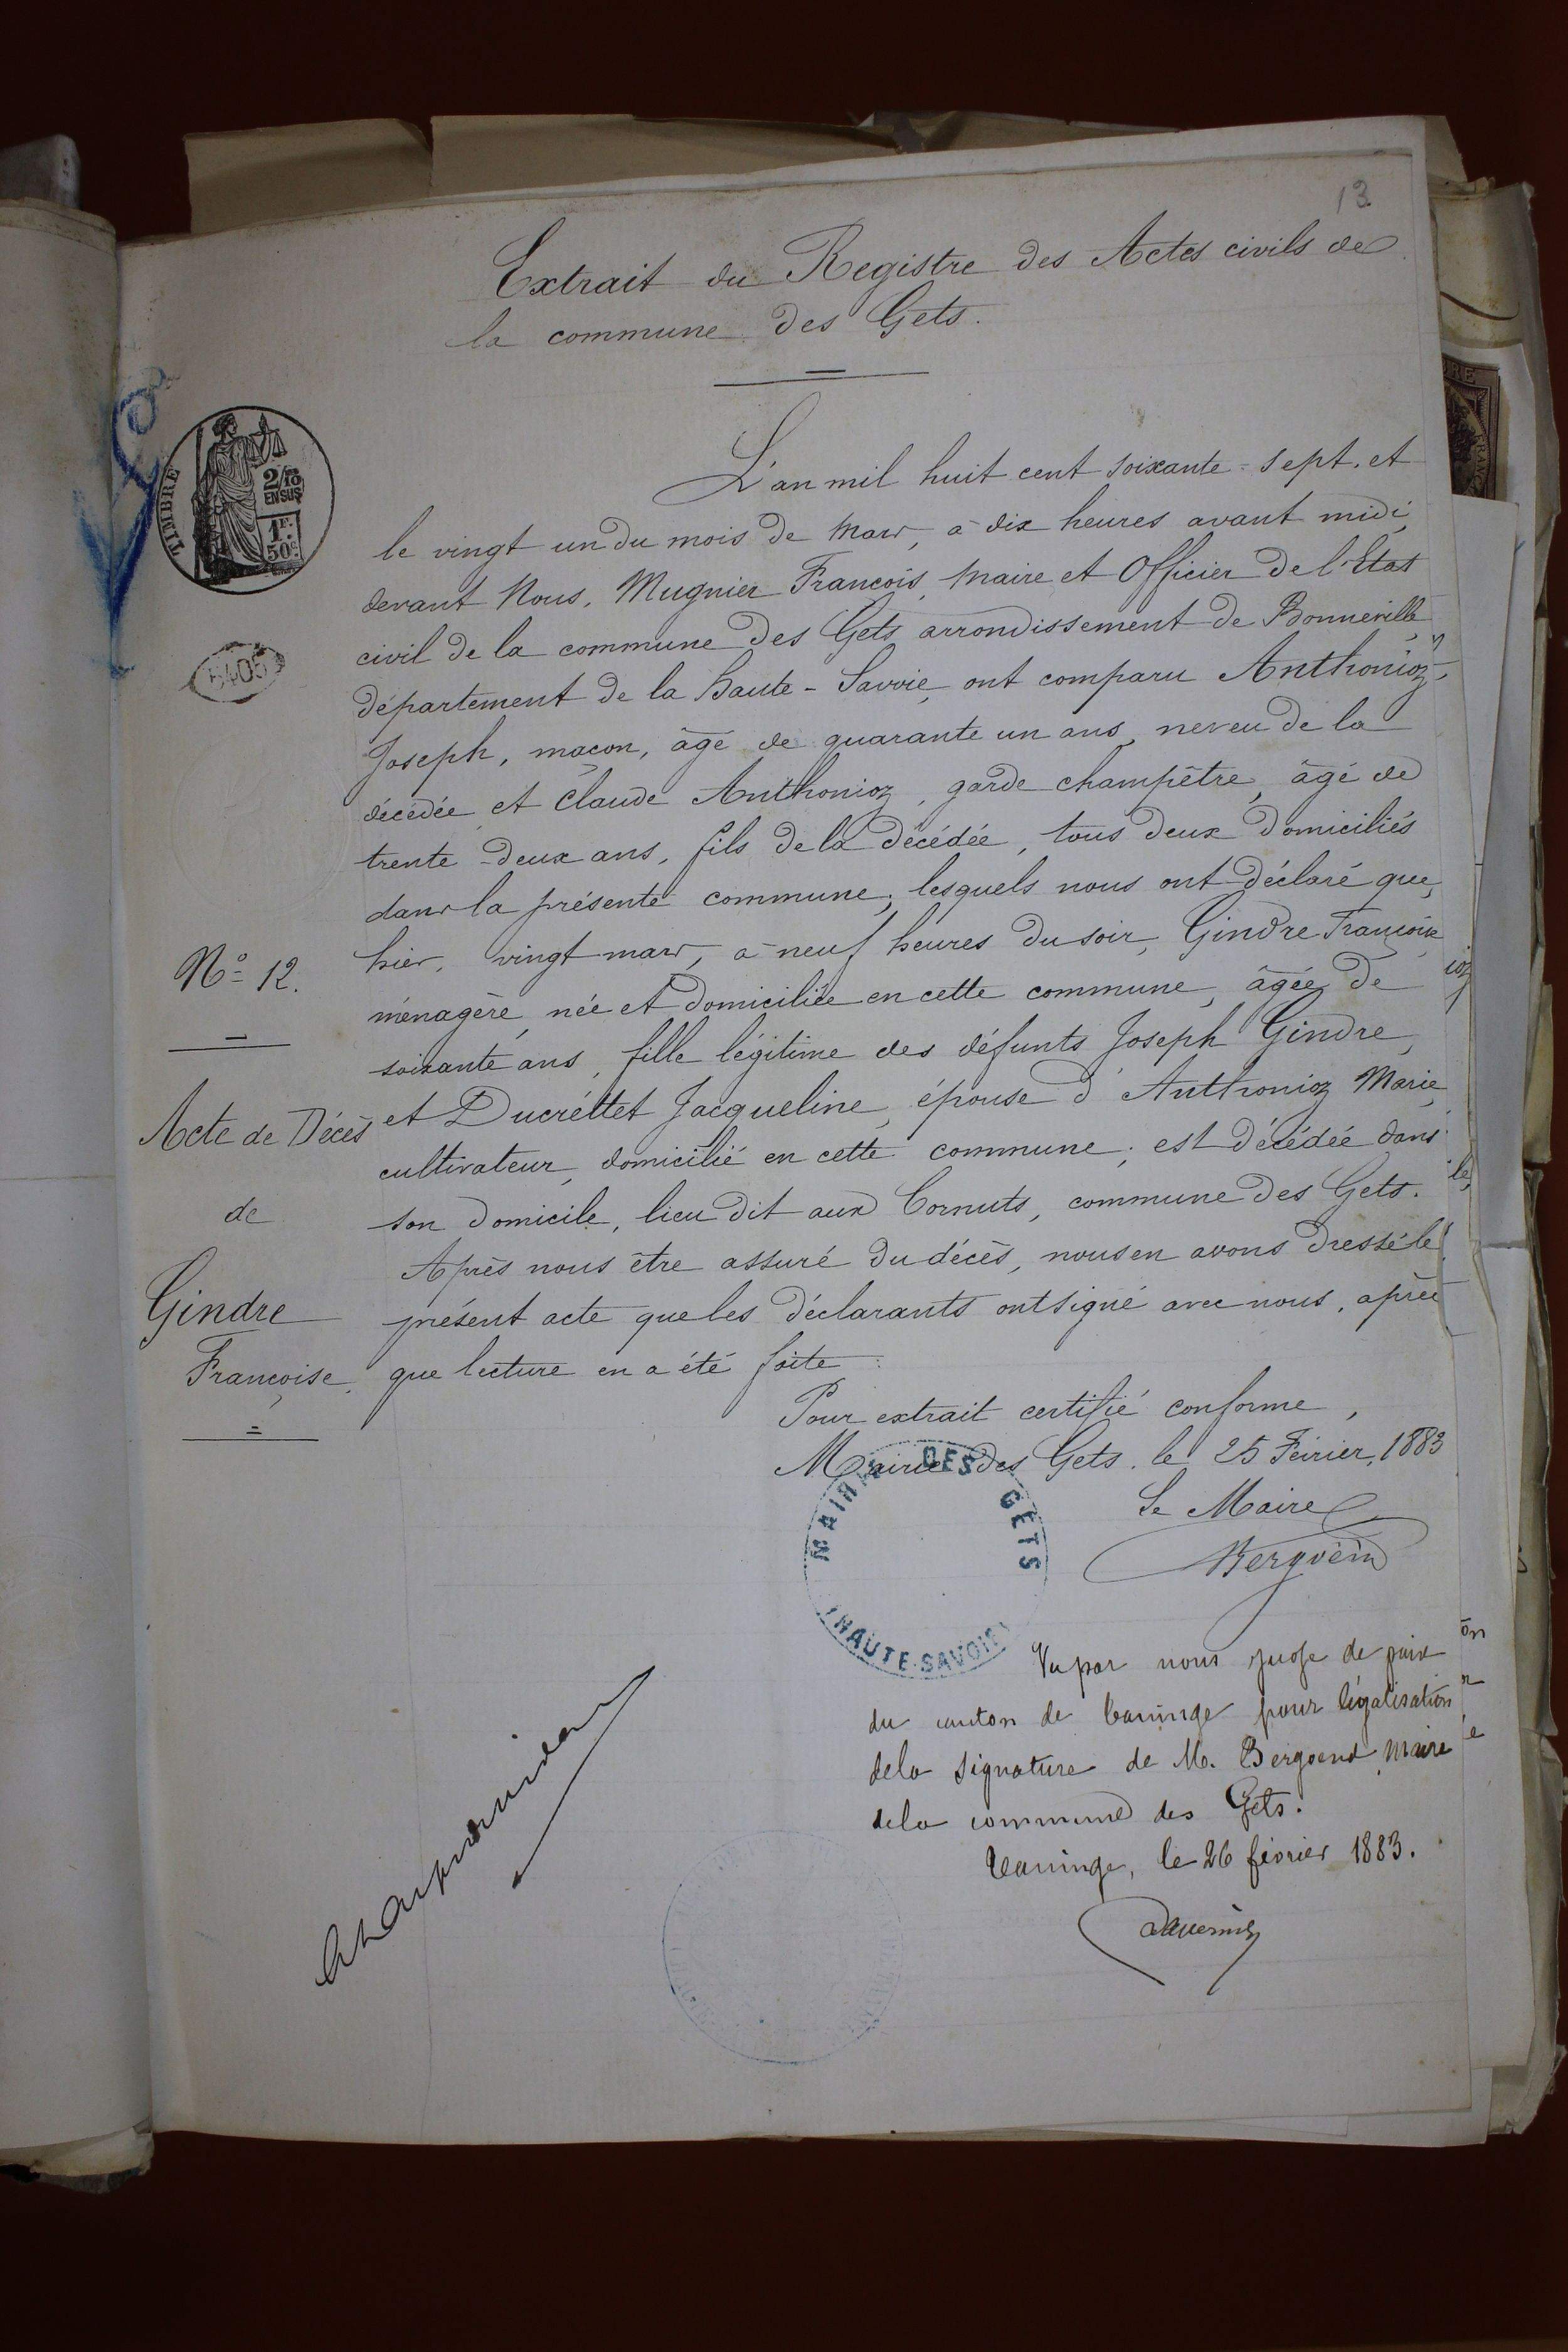 13
Extrait du Registre des Actes civils de
la commune des Gets.
TIMBRE
2/10
EN SUS
1F.
50c
5405
L'an mil huit cent soixante-sept. et
le vingt un du mois de mars, à dix heures avant midi,
devant Nous, Mugnier François, Maire et Officier de l'Etat
civil de la commune des Gets, arrondissement de Bonneville,
département de la Haute-Savoie, ont comparu Anthonioz
Joseph, maçon, âgé de quarante un ans, neveu de la
décédée et Claude Anthonioz, garde champêtre, âgé de
trente-deux ans, fils de la décédée, tous deux domiciliés
dans la présente commune; lesquels nous ont déclaré que,
hier, vingt mars, à neuf heures du soir, Gindre Françoise
ménagère, née et domiciliée en cette commune, âgée de
soixante ans, fille légitime des défunts Joseph Gindre,
et Ducrettet Jacqueline, épouse d'Anthonioz Marie,
cultivateur, domicilié en cette commune; est décédée dans
son domicile, lieu dit aux Cornuts, commune des Gets.
Après nous être assuré du décès, nous en avons dressé le
présent acte que les déclarants ont signé avec nous, après
que lecture en a été faite.
No 12.
Acte de Décès
de
Gindre
Françoise.
Pour extrait certifié conforme,
Mairie des Gets, le 25 Février, 1883
Le Maire
MAIRIE DES GETS
(HAUTE-SAVOIE)
Vu par nous juge de paix
du canton de Taninge pour légalisation
de la signature de M. Bergoend, maire
de la commune des Gets.
Taninge, le 26 février 1883.